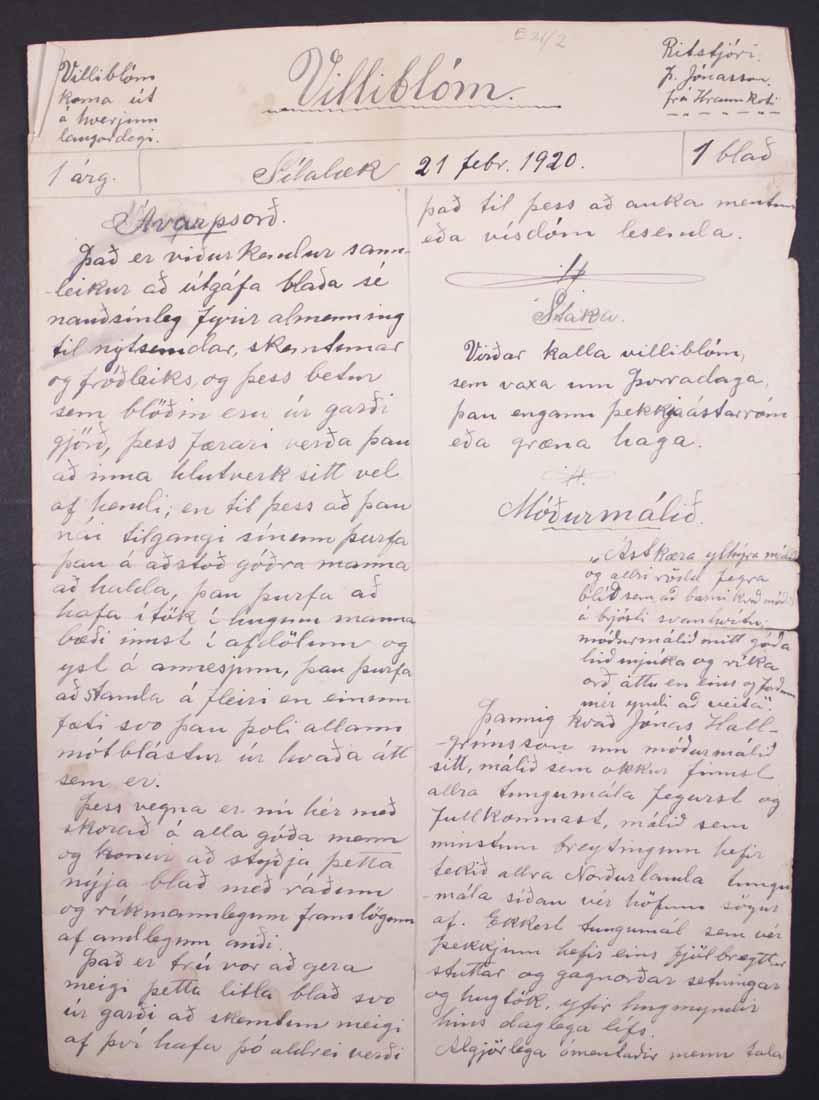 E 21/2
Villiblóm
koma út
á hverjum
laugardegi.
Villiblóm.
Ritstjóri.
Þ. Jónasson.
frá Hraunkoti
1 árg.
Sílalæk 21 febr. 1920.
1 blað
Ávarpsorð.
Það er viðurkendur sann-
-leikur að útgáfa blaða sé
nauðsínleg fyrir almenning
til nytsemdar, skemtunar
og fróðleiks, og þess betur
sem blöðin eru úr garði
gjörð, þess færari verða þau
að inna hlutverk sitt vel
af hendi; en til þess að þau
nái tilgangi sínum þurfa
þau á aðstoð góðra manna
að halda, þau þurfa að
hafa ítök í hugum manna
bæði inst í afdölum og
yst á annesjum, þau þurfa
að standa á fleiri en einum
fæti svo þau þoli allann
mótblástur úr hvaða átt
sem er.
Þess vegna er nú hér með
skorað á alla góða menn
og konur að styðja þetta
nýja blað með ráðum
og ríkmannlegum framlögum
af andlegum auði.
Það er trú vor að gera
meigi þetta litla blað svo
úr garði að skemtun meigi
af því hafa þó aldrei verði
það til þess að auka mentun
eða vísdóm lesenda.
Staka.
Virðar kalla villiblóm,
sem vaxa um Þorradaga,
þau engann þekkja ástarróm
eða græna haga.
Móðurmálið.
„Ástkæra ylhýra málið
og allri rödd fegra
blíð sem að barni kvað móðir
á brjósti svanhvítu;
móðurmálið mitt góða
hið mjúka og ríka
orð áttu en eins og forðum
mér yndi að veita".
Þannig kvað Jónas Hall-
-grímsson um móðurmálið
sitt, málið sem okkur finnst
allra tungumála fegurst og
fullkomnast, málið sem
minstum breytingum hefir
tekið allra Norðurlanda tungu
-mála síðan vér höfum sögur
af. Ekkert tungumál sem vér
þekkjum hefir eins fjölbreyttar
stuttar og gagnorðar setningar
og hugtök, yfir hugmyndir
hins daglega lífs.
Algjörlega ómentaðir menn tala